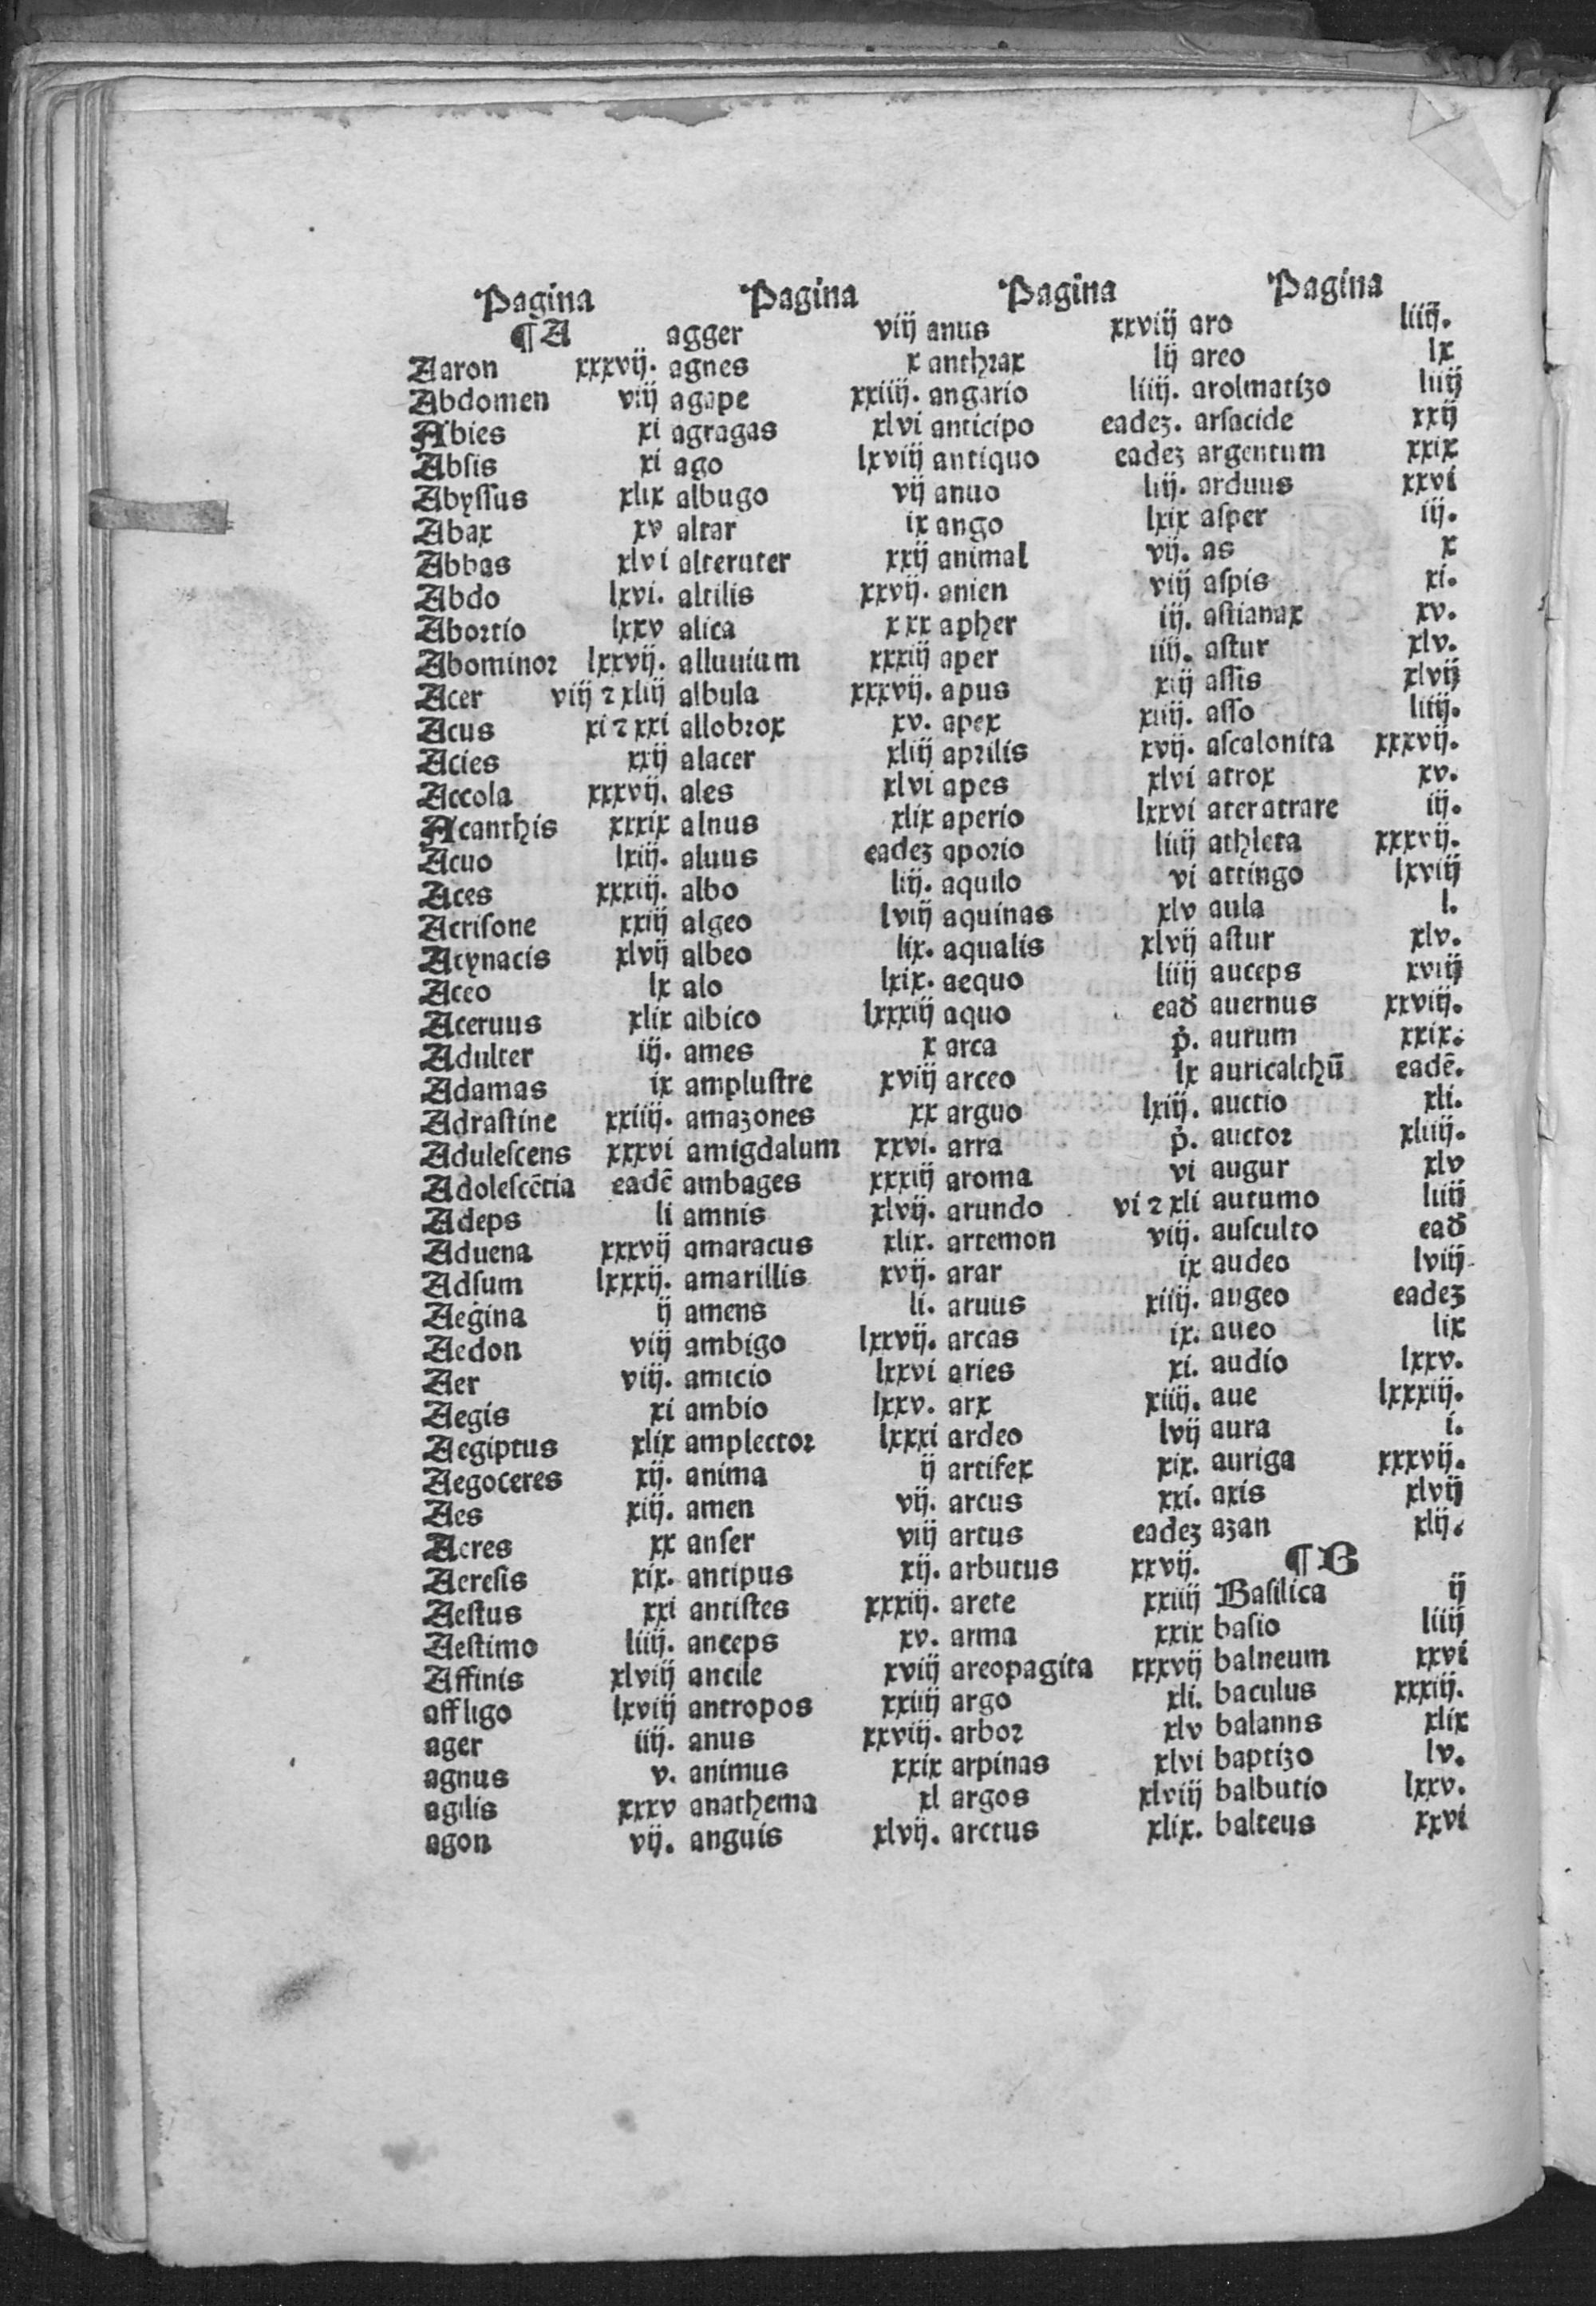 Pagina
¶A
Aaron xxxvij.
Abdomen viij
Abies xi
Absis xi
Abyssus xlix
Abax xv
Abbas xlvi
Abdo lxvi.
Abortio lxxv
Abominor lxxvij.
Acer viij ⁊ xliij
Acus xi ⁊ xxi
Acies xxij
Accola xxxvij.
Acanthis xxxix
Acuo lxiij.
Aces xxxiij.
Acrisone xxiij
Acynacis xlvij
Aceo lx
Aceruus xlix
Adulter iij.
Adamas ix
Adrastine xxiiij.
Adulescens xxxvi
Adolescētia eadē
Adeps li
Aduena xxxvij
Adsum lxxxij.
Aegina ij
Aedon viij
Aer viij.
Aegis xi
Aegiptus xlix
Aegoceres xij.
Aes xiij.
Acres xx
Aeresis xix.
Aestus xxi
Aestimo liiij.
Affinis xlviij
affligo lxviij
ager iiij.
agnus v.
agilis xxxv
agon vij.
Pagina
agger viij
agnes x
agape xxiiij.
agragas xlvi
ago lxviij
albugo vij
altar ix
alteruter xxij
altilis xxvij.
alica xxx
alluuium xxxiij
albula xxxvij.
allobrox xv.
alacer xliij
ales xlvi
alnus xlix
aluus eadez
albo liij.
algeo lviij
albeo lix.
alo lxix.
albico lxxxiij
ames x
amplustre xviij
amazones xx
amigdalum xxvi.
ambages xxxiij
amnis xlvij.
amaracus xlix.
amarillis xvij.
amens li.
ambigo lxxvij.
amicio lxxvi
ambio lxxv.
amplector lxxxi
anima ij
amen vij.
anser viij
antipus xij.
antistes xxxiij.
anceps xv.
ancile xviij
antropos xxiiij
anus xxviij.
animus xxix
anathema xl
anguis xlvij.
Pagina
anus xxviij
anthrax lij
angario liiij.
anticipo eadez.
antiquo eadez
anuo liij.
ango lxix
animal vij.
anien viij
apher iij.
aper iiij.
apus xiij
apex xiiij.
aprilis xvij.
apes xlvi
aperio lxxvi
aporio liiij
aquilo vi
aquinas xlv
aqualis xlvij
aequo liiij
aquo ead̄
arca p̄.
arceo lx
arguo lxiij.
arra p̄.
aroma vi
arundo vi ⁊ xli
artemon viij.
arar ix
aruus xiiij.
arcas ix.
aries xi.
arx xiiij.
ardeo lvij
artifex xix.
arcus xxi.
artus eadez
arbutus xxvij.
arete xxiiij
arma xxix
areopagita xxxvij
argo xli.
arbor xlv
arpinas xlvi
argos xlviij
arctus xlix.
Pagina
aro liiij.
areo lx
arolmatizo liiij
arsacide xxij
argentum xxix
arduus xxvi
asper iij.
as x
aspis xi.
astianax xv.
astur xlv.
assis xlvij
asso liiij.
ascalonita xxxvij.
atrox xv.
ater atrare iij.
athleta xxxvij.
attingo lxviij
aula l.
astur xlv.
auceps xviij
auernus xxviij.
aurum xxix.
auricalchū eadē.
auctio xli.
auctor xliiij.
augur xlv
autumo liiij
ausculto ead̄
audeo lviij
augeo eadez
aueo lix
audio lxxv.
aue lxxxiij.
aura i.
auriga xxxvij.
axis xlvij
azan xlij.
¶B
Basilica ij
basio liiij
balneum xxvi
baculus xxxiij.
balanns xlix
baptizo lv.
balbutio lxxv.
balteus xxvi